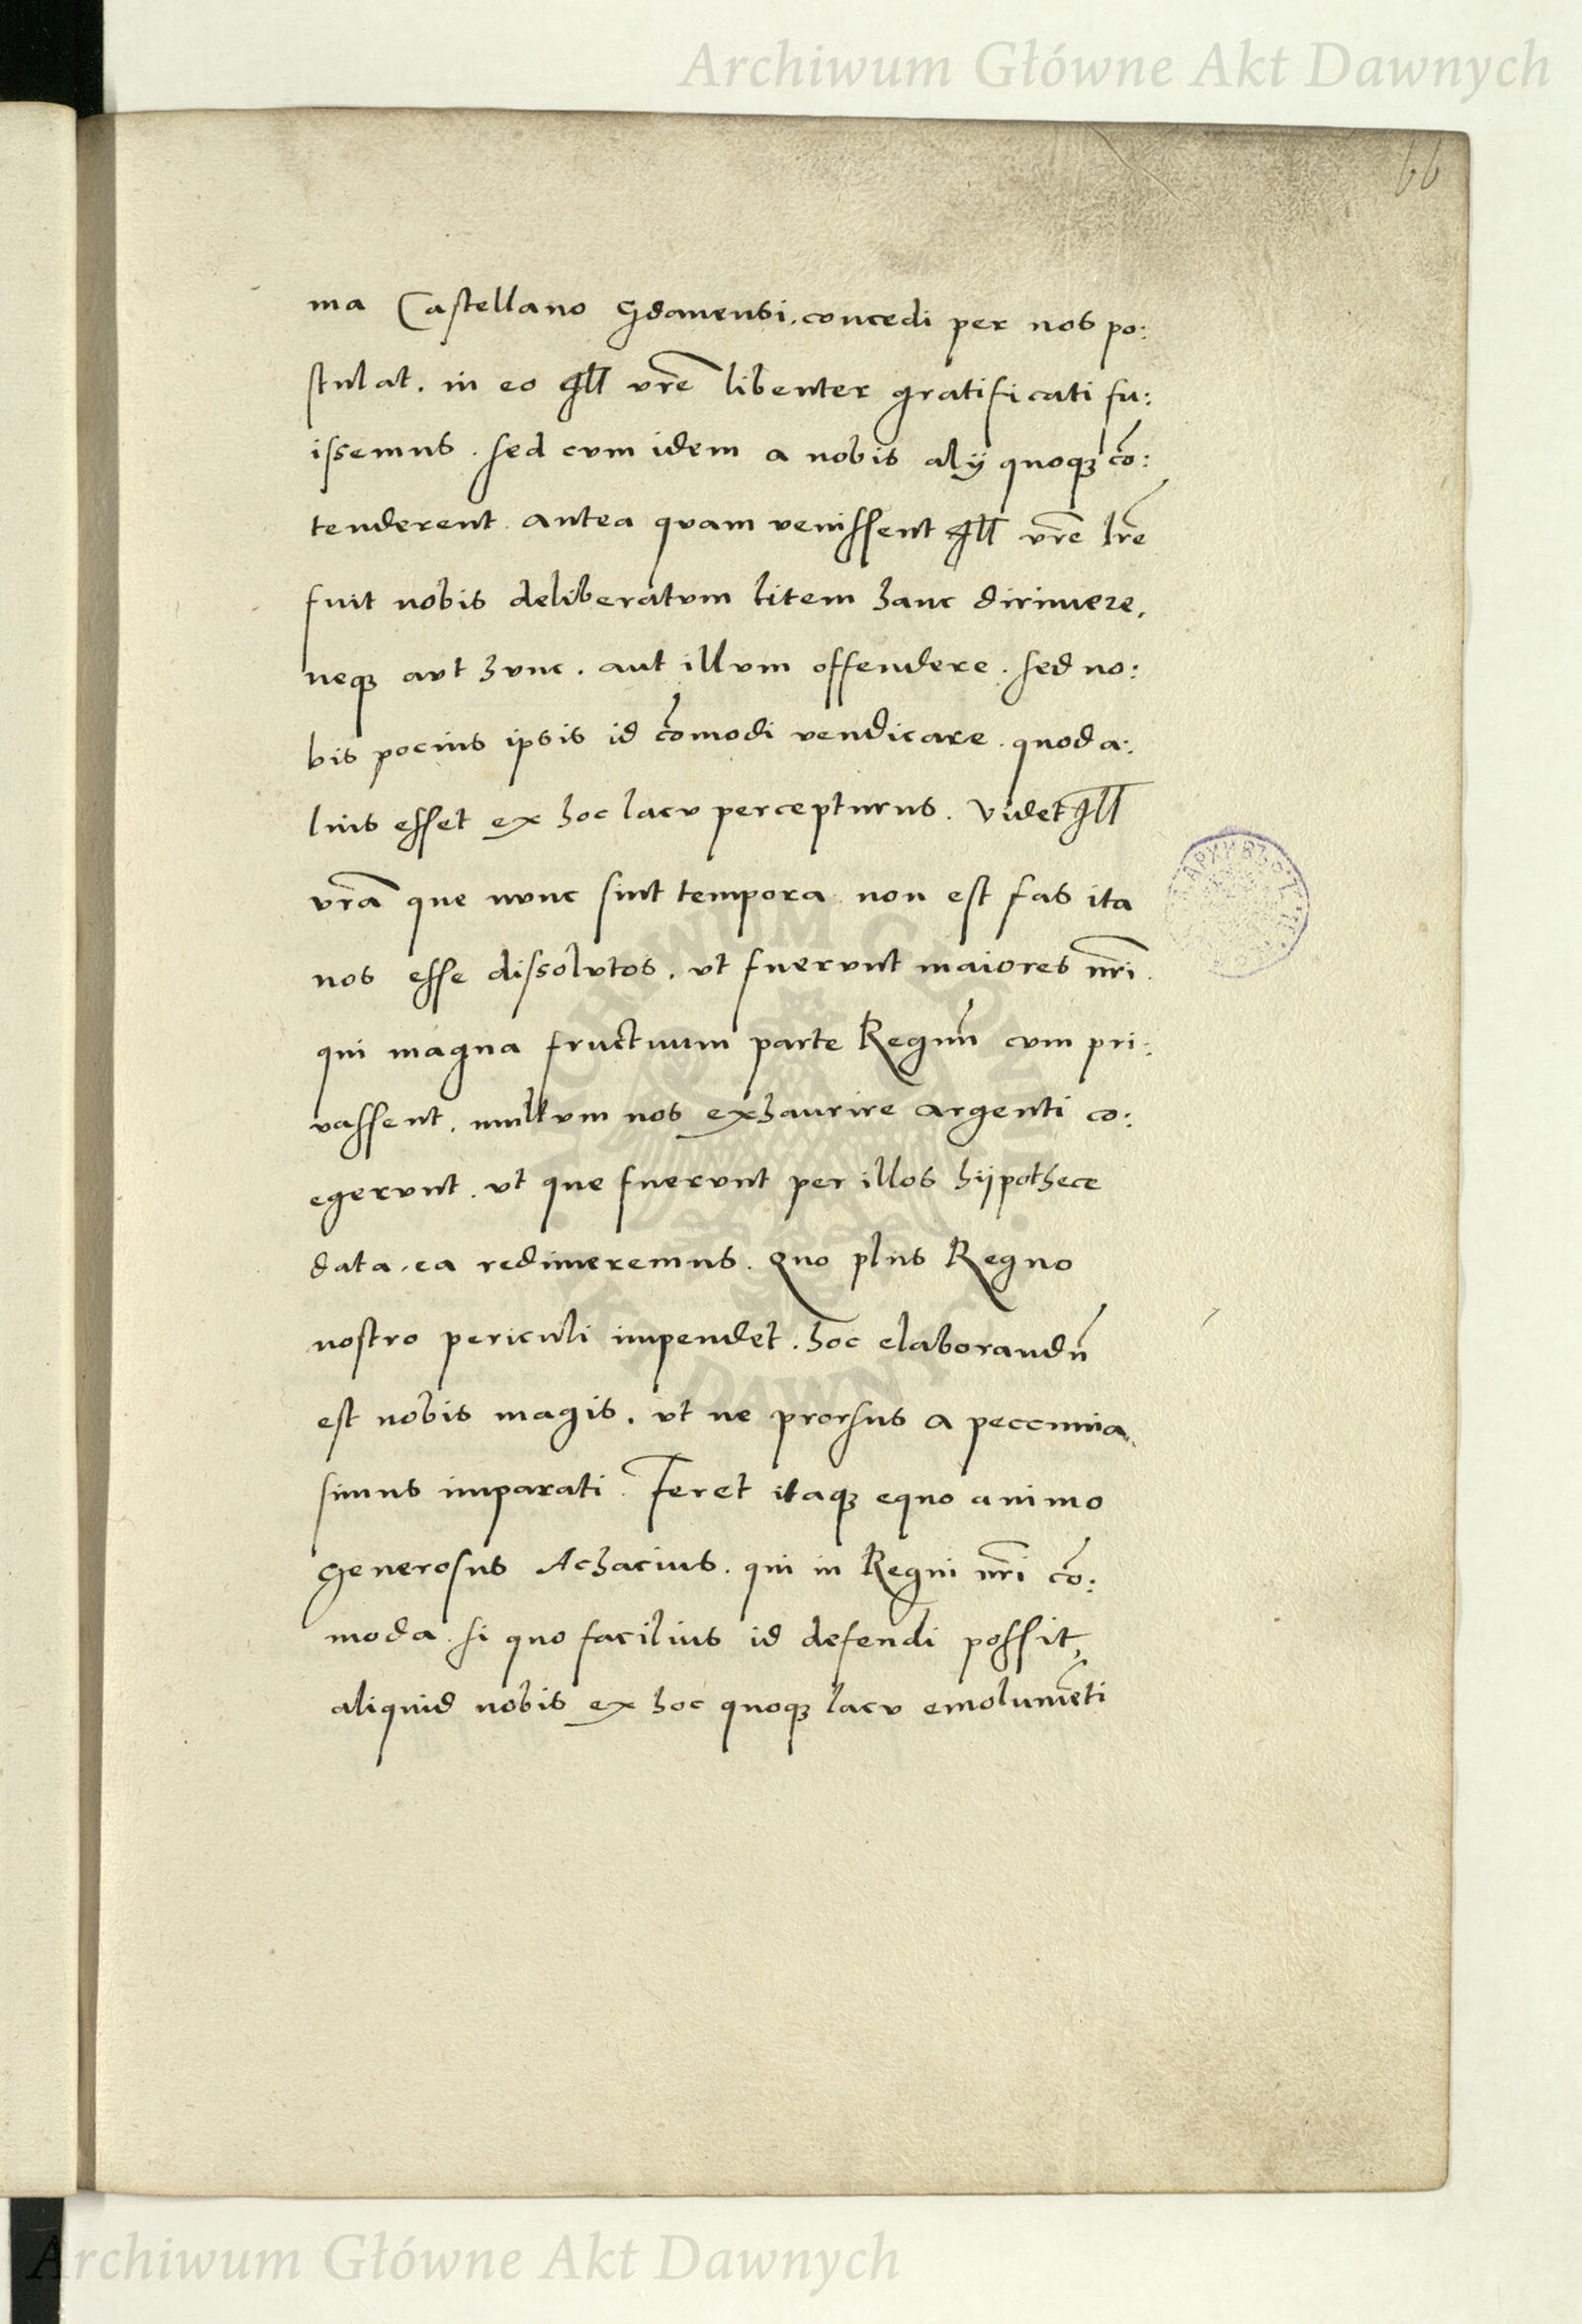 Archiwum Główne Akt Dawnych
66
ma Castellano Gdanensi. concedi per nos po:
stulat. in eo Ill vr̃e libenter gratificati fu:
issemus. sed cum idem a nobis alÿ quoqꝫ cõ:
tenderent. antea quam venissent Ill vr̃e lr̃e
fuit nobis deliberatum litem hanc dirimere,
neqꝫ aut hunc. aut illum offendere. sed no:
bis pocius ipsis id cõmodi vendicare. quod a:
lius esset ex hoc lacu percepturus. Videt Ill
vrã que nunc sint tempora non est fas ita
nos esse dissolutos. ut fuerunt maiores nr̃i.
qui magna fructuum parte Regnũ cum pri:
vassent. nullum nos exhaurire argenti co:
egerunt. ut que fuerunt per illos hÿpothece
data. ea redimeremus. Quo plus Regno
nostro periculi impendet. hoc elaborandũ
est nobis magis. ut ne prorsus a peccunia
simus imparati. Feret itaqꝫ equo animo
generosus Achacius. qui in Regni nr̃i cõ:
moda. si quo facilius id defendi possit,
aliquid nobis ex hoc quoqꝫ lacu emolumẽti
Archiwum Główne Akt Dawnych